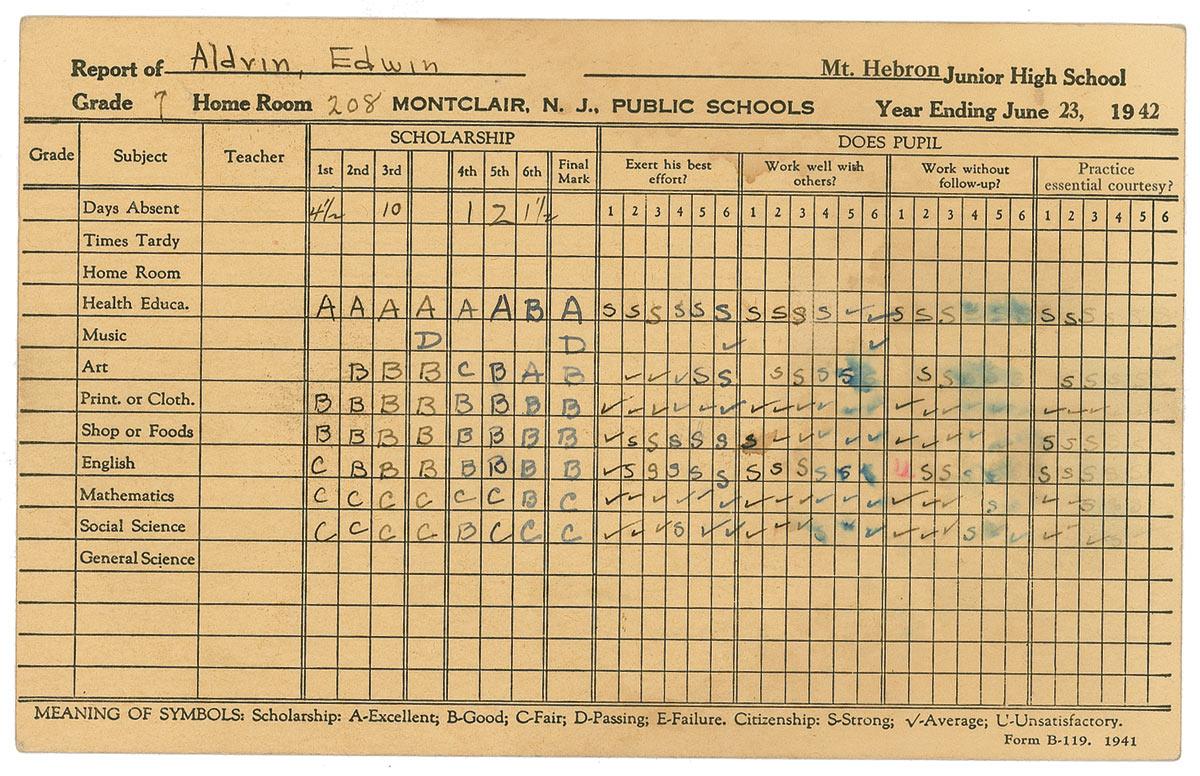 Report of Aldrin, Edwin Mt. Hebron Junior High School
Grade 7 Home Room 208 MONTCLAIR, N. J., PUBLIC SCHOOLS Year Ending June 23, 1942
SCHOLARSHIP DOES PUPIL
Grade Subject Teacher 1st 2nd 3rd 4th 5th 6th Final Mark Exert his best effort? Work well with others? Work without follow-up? Practice essential courtesy?
Days Absent 4½ 10 1 2 1½ 1 2 3 4 5 6 1 2 3 4 5 6 1 2 3 4 5 6 1 2 3 4 5 6
Times Tardy
Home Room
Health Educa. A A A A A A B A S S S S S S S S S S ✓ ✓ S S S S S S
Music D D ✓ ✓
Art B B B C B A B ✓ ✓ ✓ S S S S S S S S S S
Print. or Cloth. B B B B B B B B ✓ ✓ ✓ ✓ ✓ ✓ ✓ ✓ ✓ ✓ ✓ ✓ ✓ ✓ ✓ ✓ ✓
Shop or Foods B B B B B B B B ✓ S S S S S S ✓ ✓ ✓ ✓ ✓ ✓ ✓ ✓ ✓ S S S
English C B B B B B B B ✓ S S S S S S S S S S S S S S S S
Mathematics C C C C C C B C ✓ ✓ ✓ ✓ ✓ ✓ ✓ ✓ ✓ ✓ ✓ ✓ ✓ ✓ ✓ S ✓ ✓ S
Social Science C C C C B C C C ✓ ✓ ✓ S ✓ ✓ ✓ ✓ ✓ S ✓ ✓ ✓ ✓ ✓ S ✓ ✓ ✓ ✓
General Science
MEANING OF SYMBOLS: Scholarship: A-Excellent; B-Good; C-Fair; D-Passing; E-Failure. Citizenship: S-Strong; ✓-Average; U-Unsatisfactory.
Form B-119. 1941